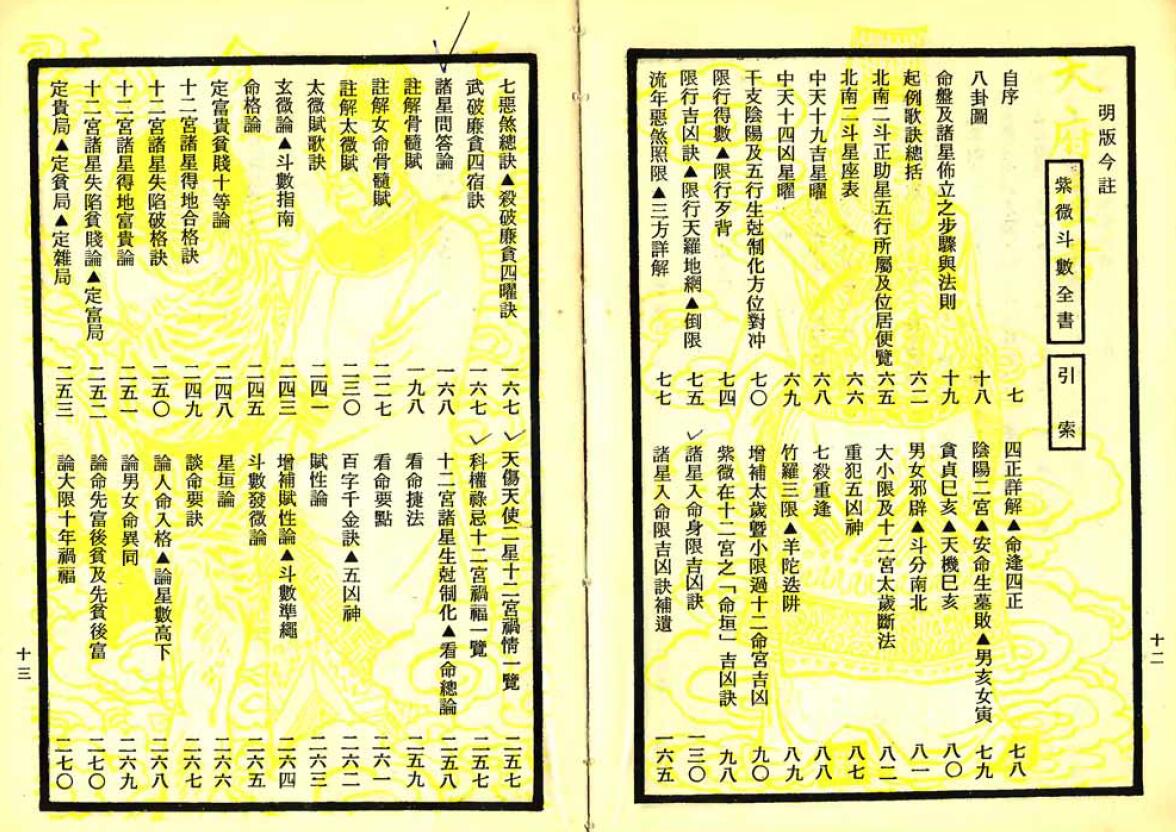 明版今註
紫微斗數全書
引索
自序 七
八卦圖 十八
命盤及諸星佈立之步驟與法則 十九
起例歌訣總括 六二
北南二斗正助星五行所屬及位居便覽 六五
北南二斗星座表 六六
中天十九吉星曜 六八
中天十四凶星曜 六九
干支陰陽及五行生尅制化方位對冲 七〇
限行得數▲限行歹背 七四
限行吉凶訣▲限行天羅地網▲倒限 七五
流年惡煞照限▲三方詳解 七七
四正詳解▲命逢四正 七八
陰陽二宮▲安命生墓敗▲男亥女寅 七九
貪貞巳亥▲天機巳亥 八〇
男女邪辟▲斗分南北 八一
大小限及十二宮太歲斷法 八二
重犯五凶神 八七
七殺重逢 八八
竹羅三限▲羊陀迭阱 八九
增補太歲曁小限過十二命宮吉凶 九〇
紫微在十二宮之「命垣」吉凶訣 九八
諸星入命身限吉凶訣 一三〇
諸星入命限吉凶訣補遺 一六五
十二
七惡煞總訣▲殺破廉貪四曜訣 一六七
武破廉貪四宿訣 一六七
諸星問答論 一六八
註解骨髓賦 一九八
註解女命骨髓賦 二二七
註解太微賦 二三〇
太微賦歌訣 二四一
玄微論▲斗數指南 二四三
命格論 二四五
定富貴貧賤十等論 二四八
十二宮諸星得地合格訣 二四九
十二宮諸星失陷破格訣 二五〇
十二宮諸星得地富貴論 二五一
十二宮諸星失陷貧賤論▲定富局 二五二
定貴局▲定貧局▲定雜局 二五三
天傷天使二星十二宮禍情一覽 二五七
科權祿忌十二宮禍福一覽 二五七
十二宮諸星生尅制化▲看命總論 二五八
看命捷法 二五九
看命要點 二六一
百字千金訣▲五凶神 二六二
賦性論 二六三
增補賦性論▲斗數準繩 二六四
斗數發微論 二六五
星垣論 二六六
談命要訣 二六七
論人命入格▲論星數高下 二六八
論男女命異同 二六九
論命先富後貧及先貧後富 二七〇
論大限十年禍福 二七〇
十三